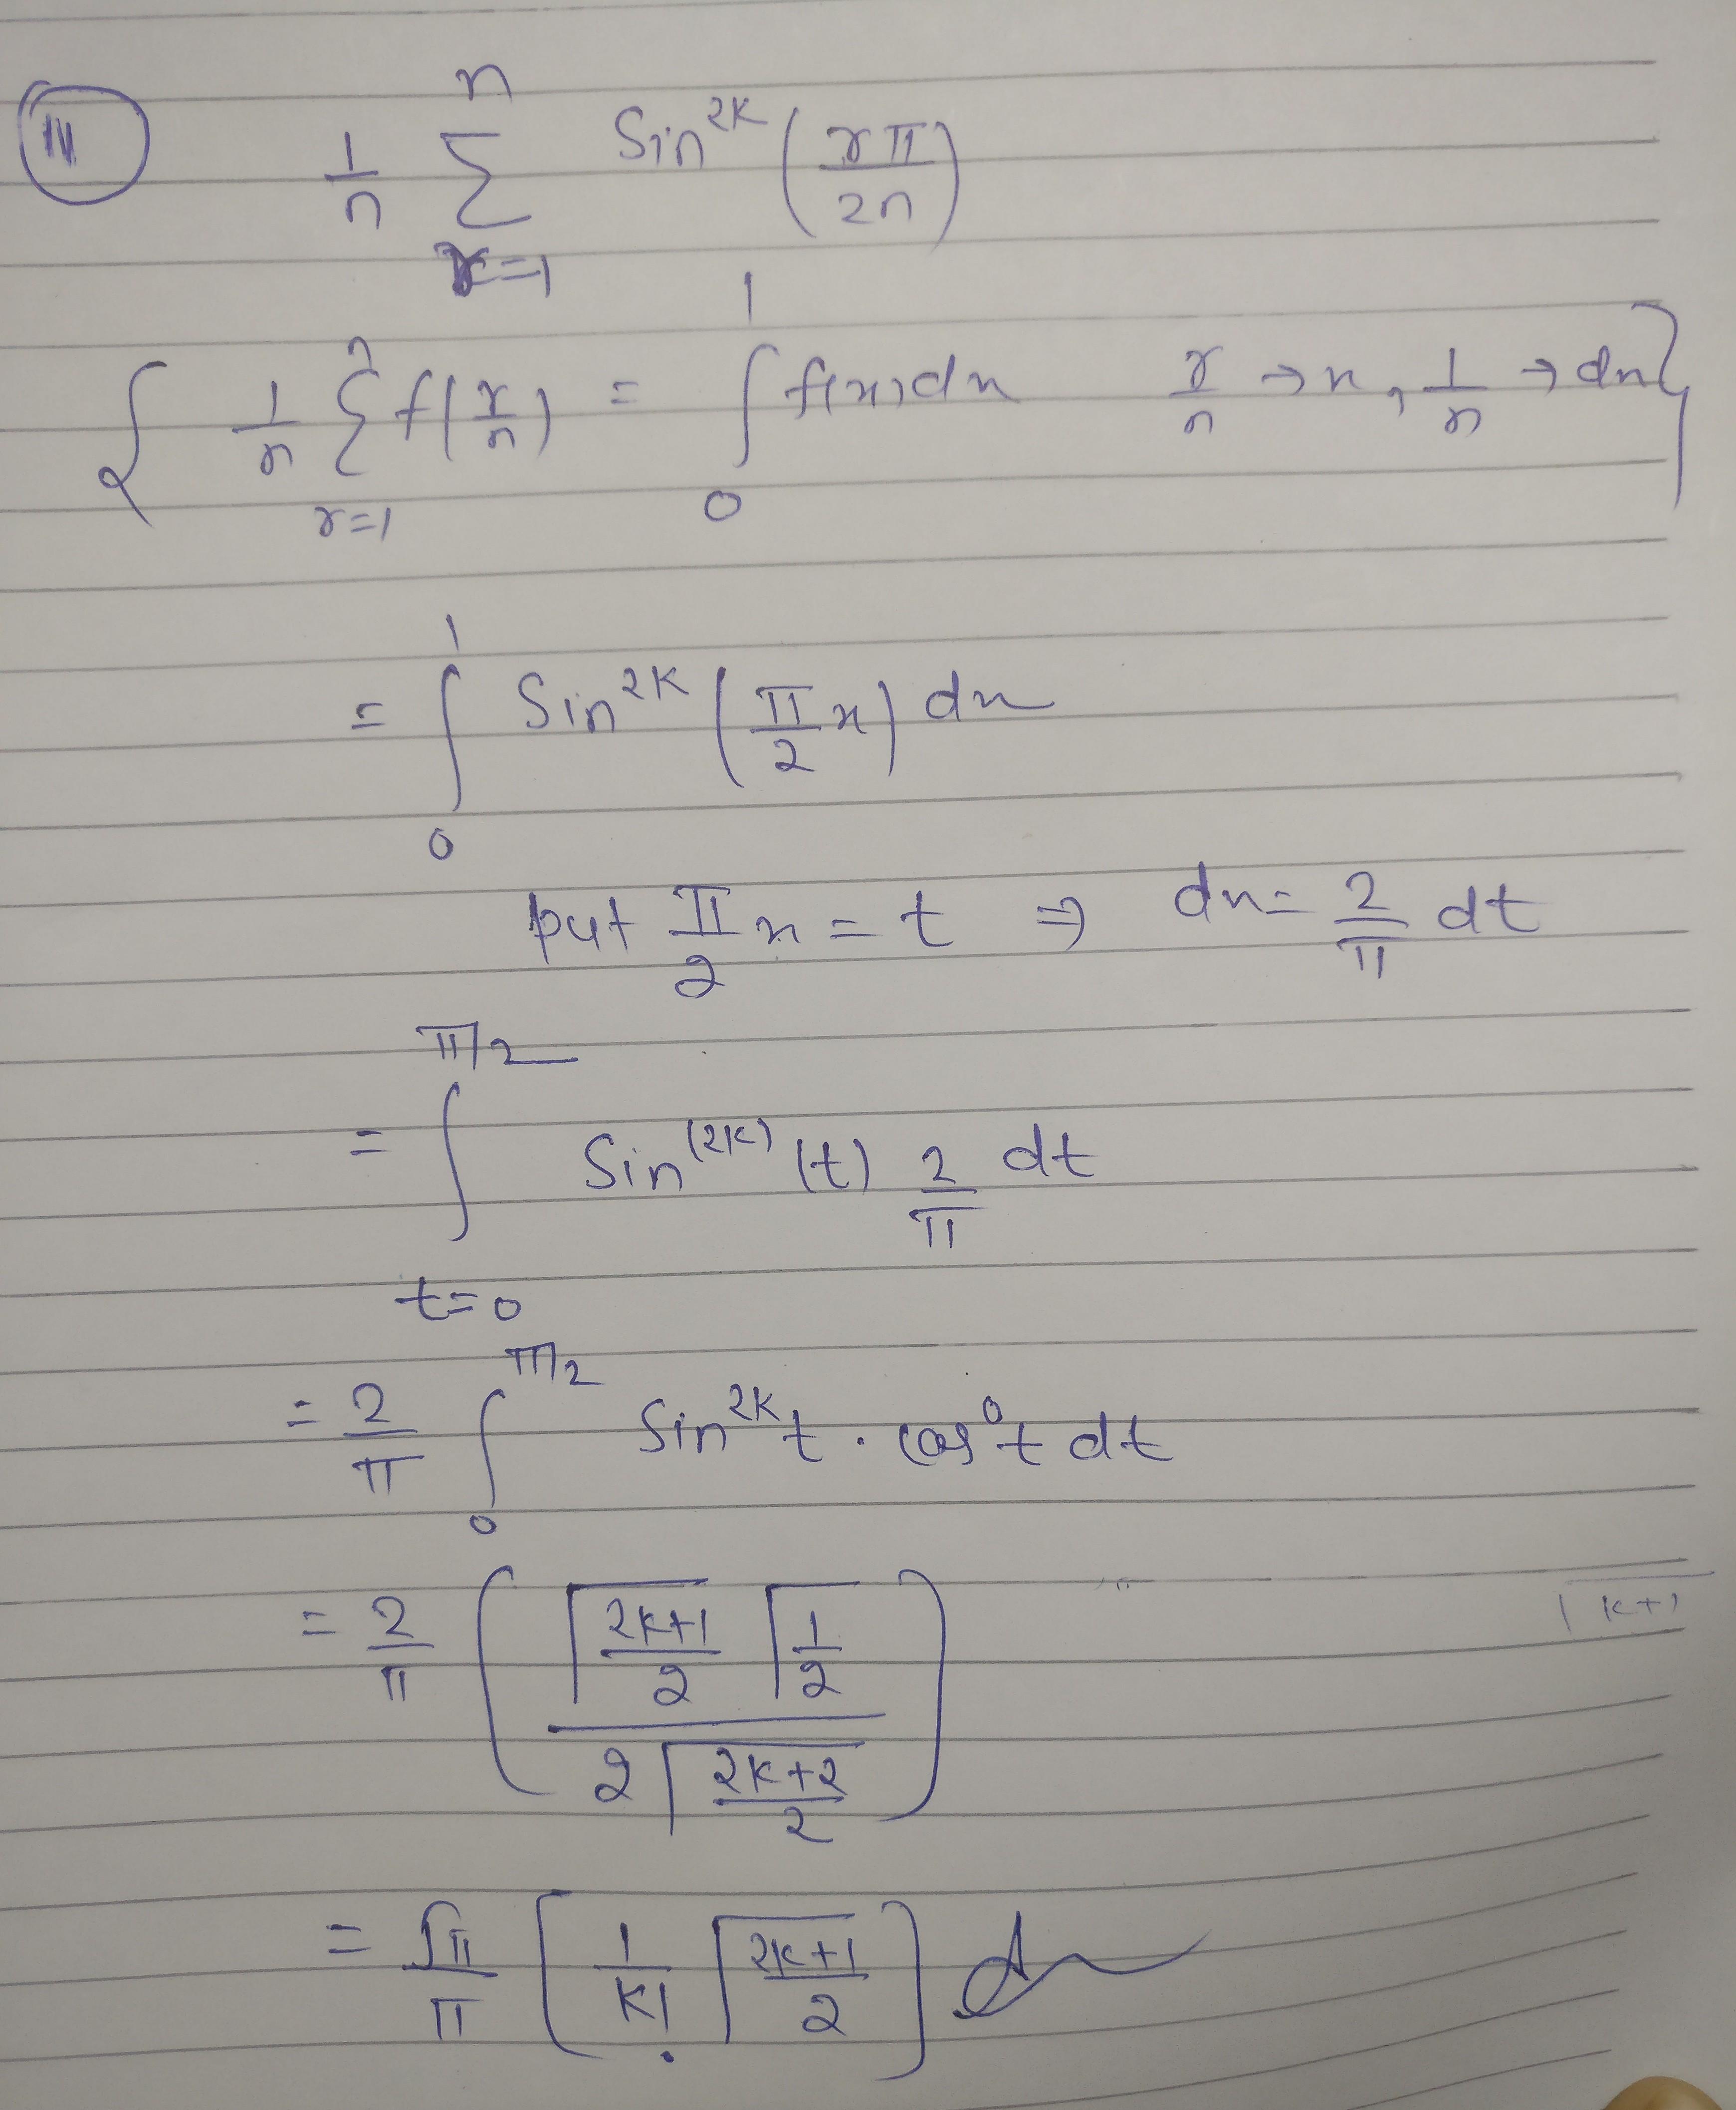 III 1/n Σ_{r=1}^{n} Sin^{2K} (rπ/2n)
{ 1/n Σ_{r=1}^{n} f(r/n) = ∫_0^1 f(x)dx r/n → x, 1/n → dx }
= ∫_0^1 Sin^{2K} (π/2 x) dx
put π/2 x = t ⇒ dx = 2/π dt
= ∫_{t=0}^{π/2} Sin^{(2K)} (t) 2/π dt
= 2/π ∫_0^{π/2} Sin^{2K} t . cos^0 t dt
= 2/π ( Γ(2K+1/2) Γ(1/2) / 2 Γ(2K+2/2) )
Γ(K+1)
= √π/π [ 1/K! Γ(2K+1/2) ]